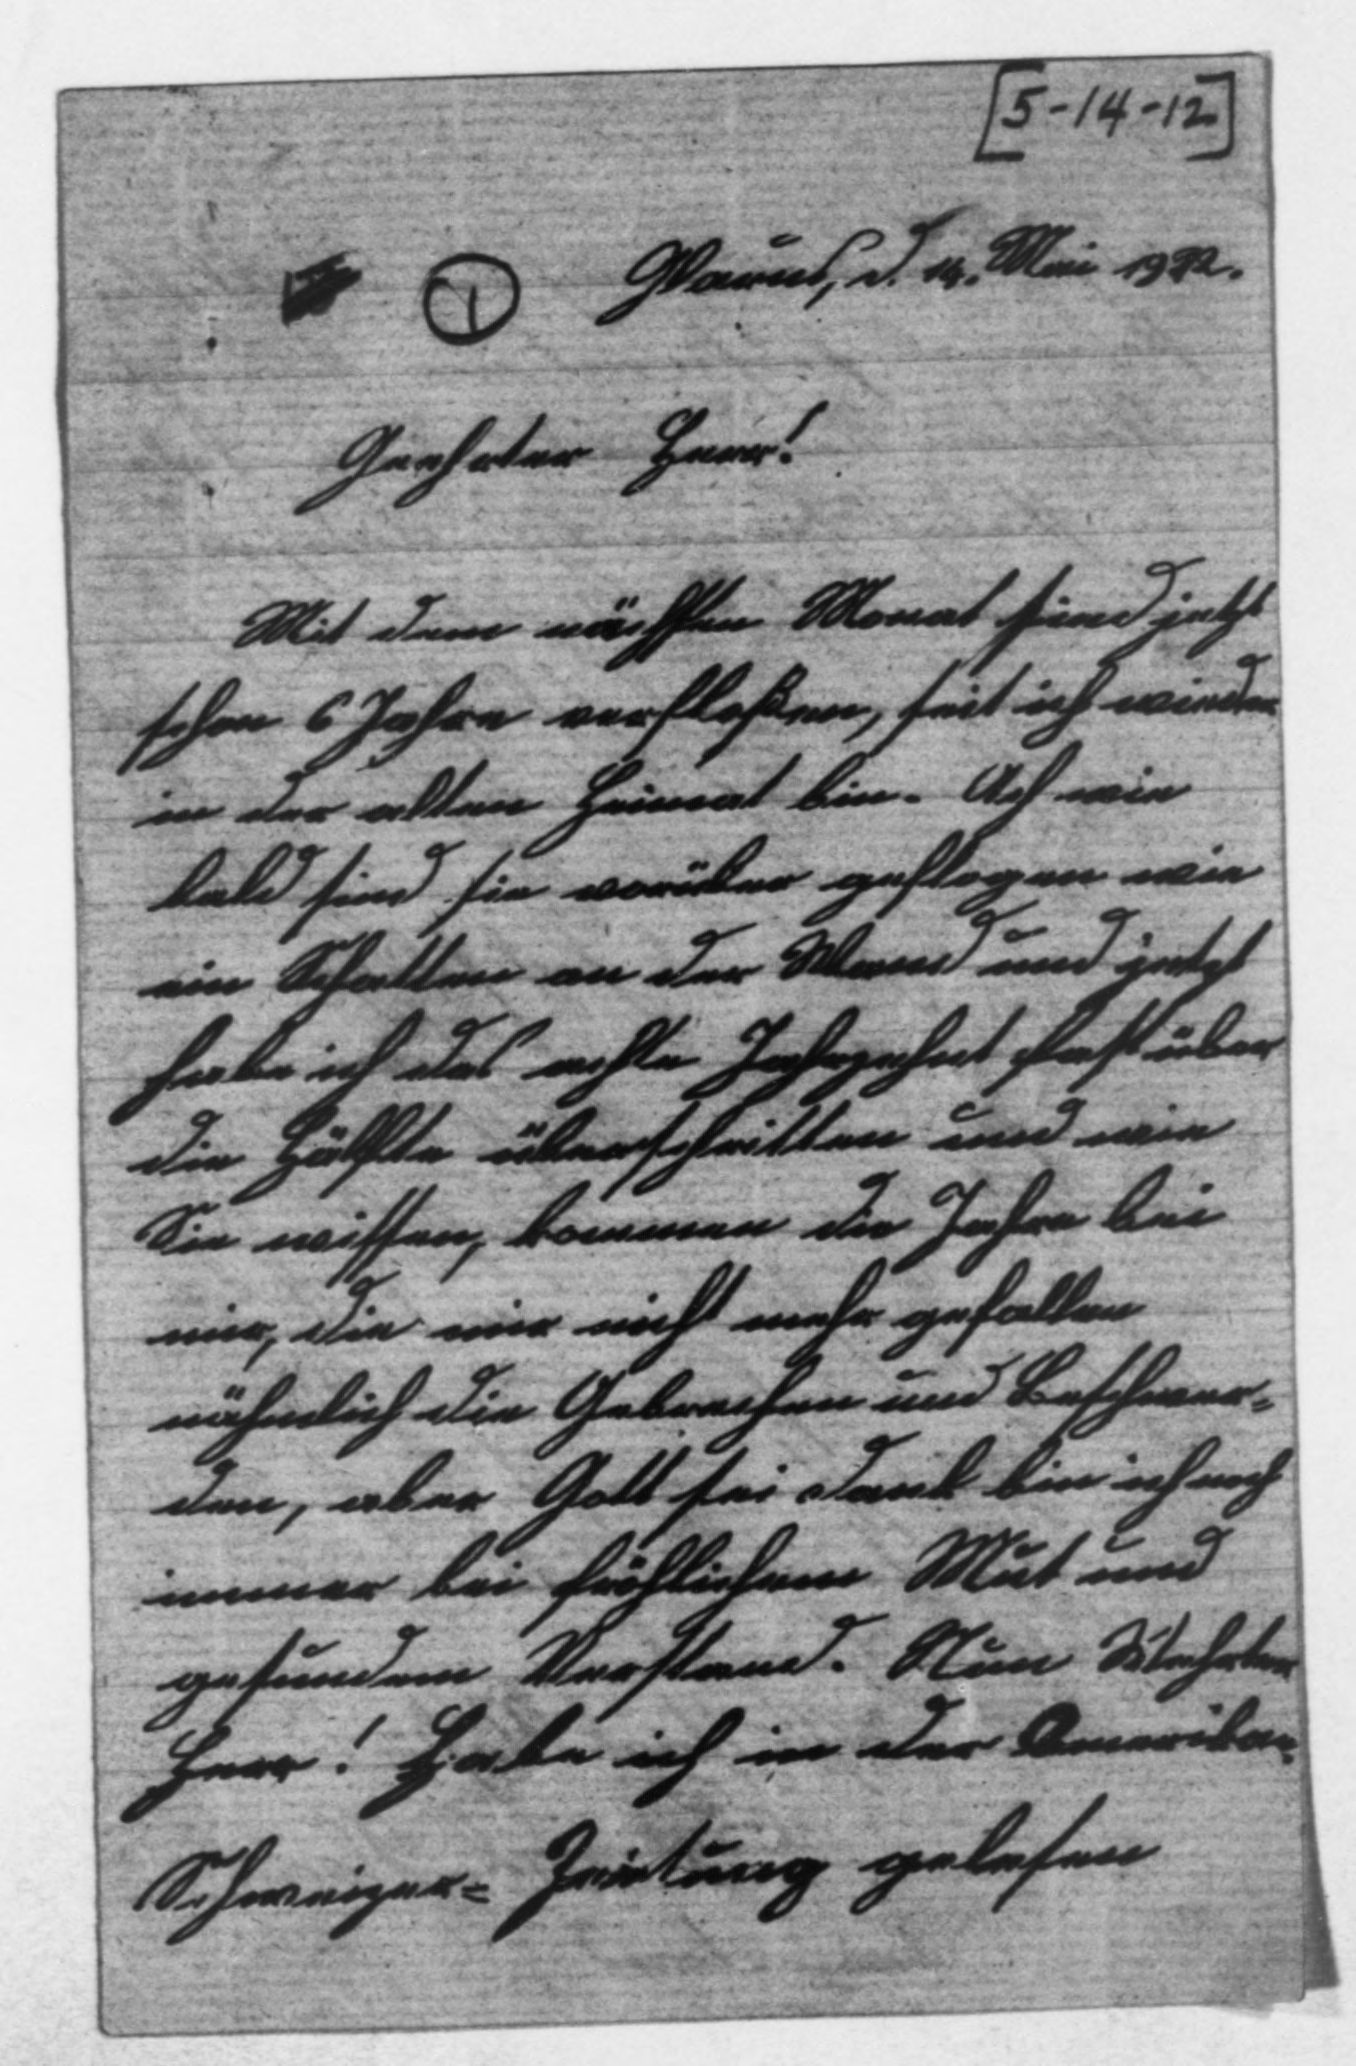 [5-14-12]
1 Glarus, d. 14. Mai 1912.
Geehrter Herr!
Mit dem nächsten Monat sind jetzt
schon 6 Jahre verfloßen, seit ich wieder
in der alten Heimat bin. Ach wie
bald sind sie vorüber geflogen wie
ein Schatten an der Wand und jetzt
habe ich das achte Jahrzehnt fast über
die Hälfte überschritten und wie
Sie wissen, kommen die Jahre bei
mir, die mir nicht mehr gefallen
nähmlich die Gebrechen und Beschwer=
den, aber Gott sei dank bin ich noch
immer bei fröhlichem Mut und
gesundem Verstand. Nun Wehrter
Herr! Habe ich in der Amerikan.
Schweizer= Zeitung gelesen